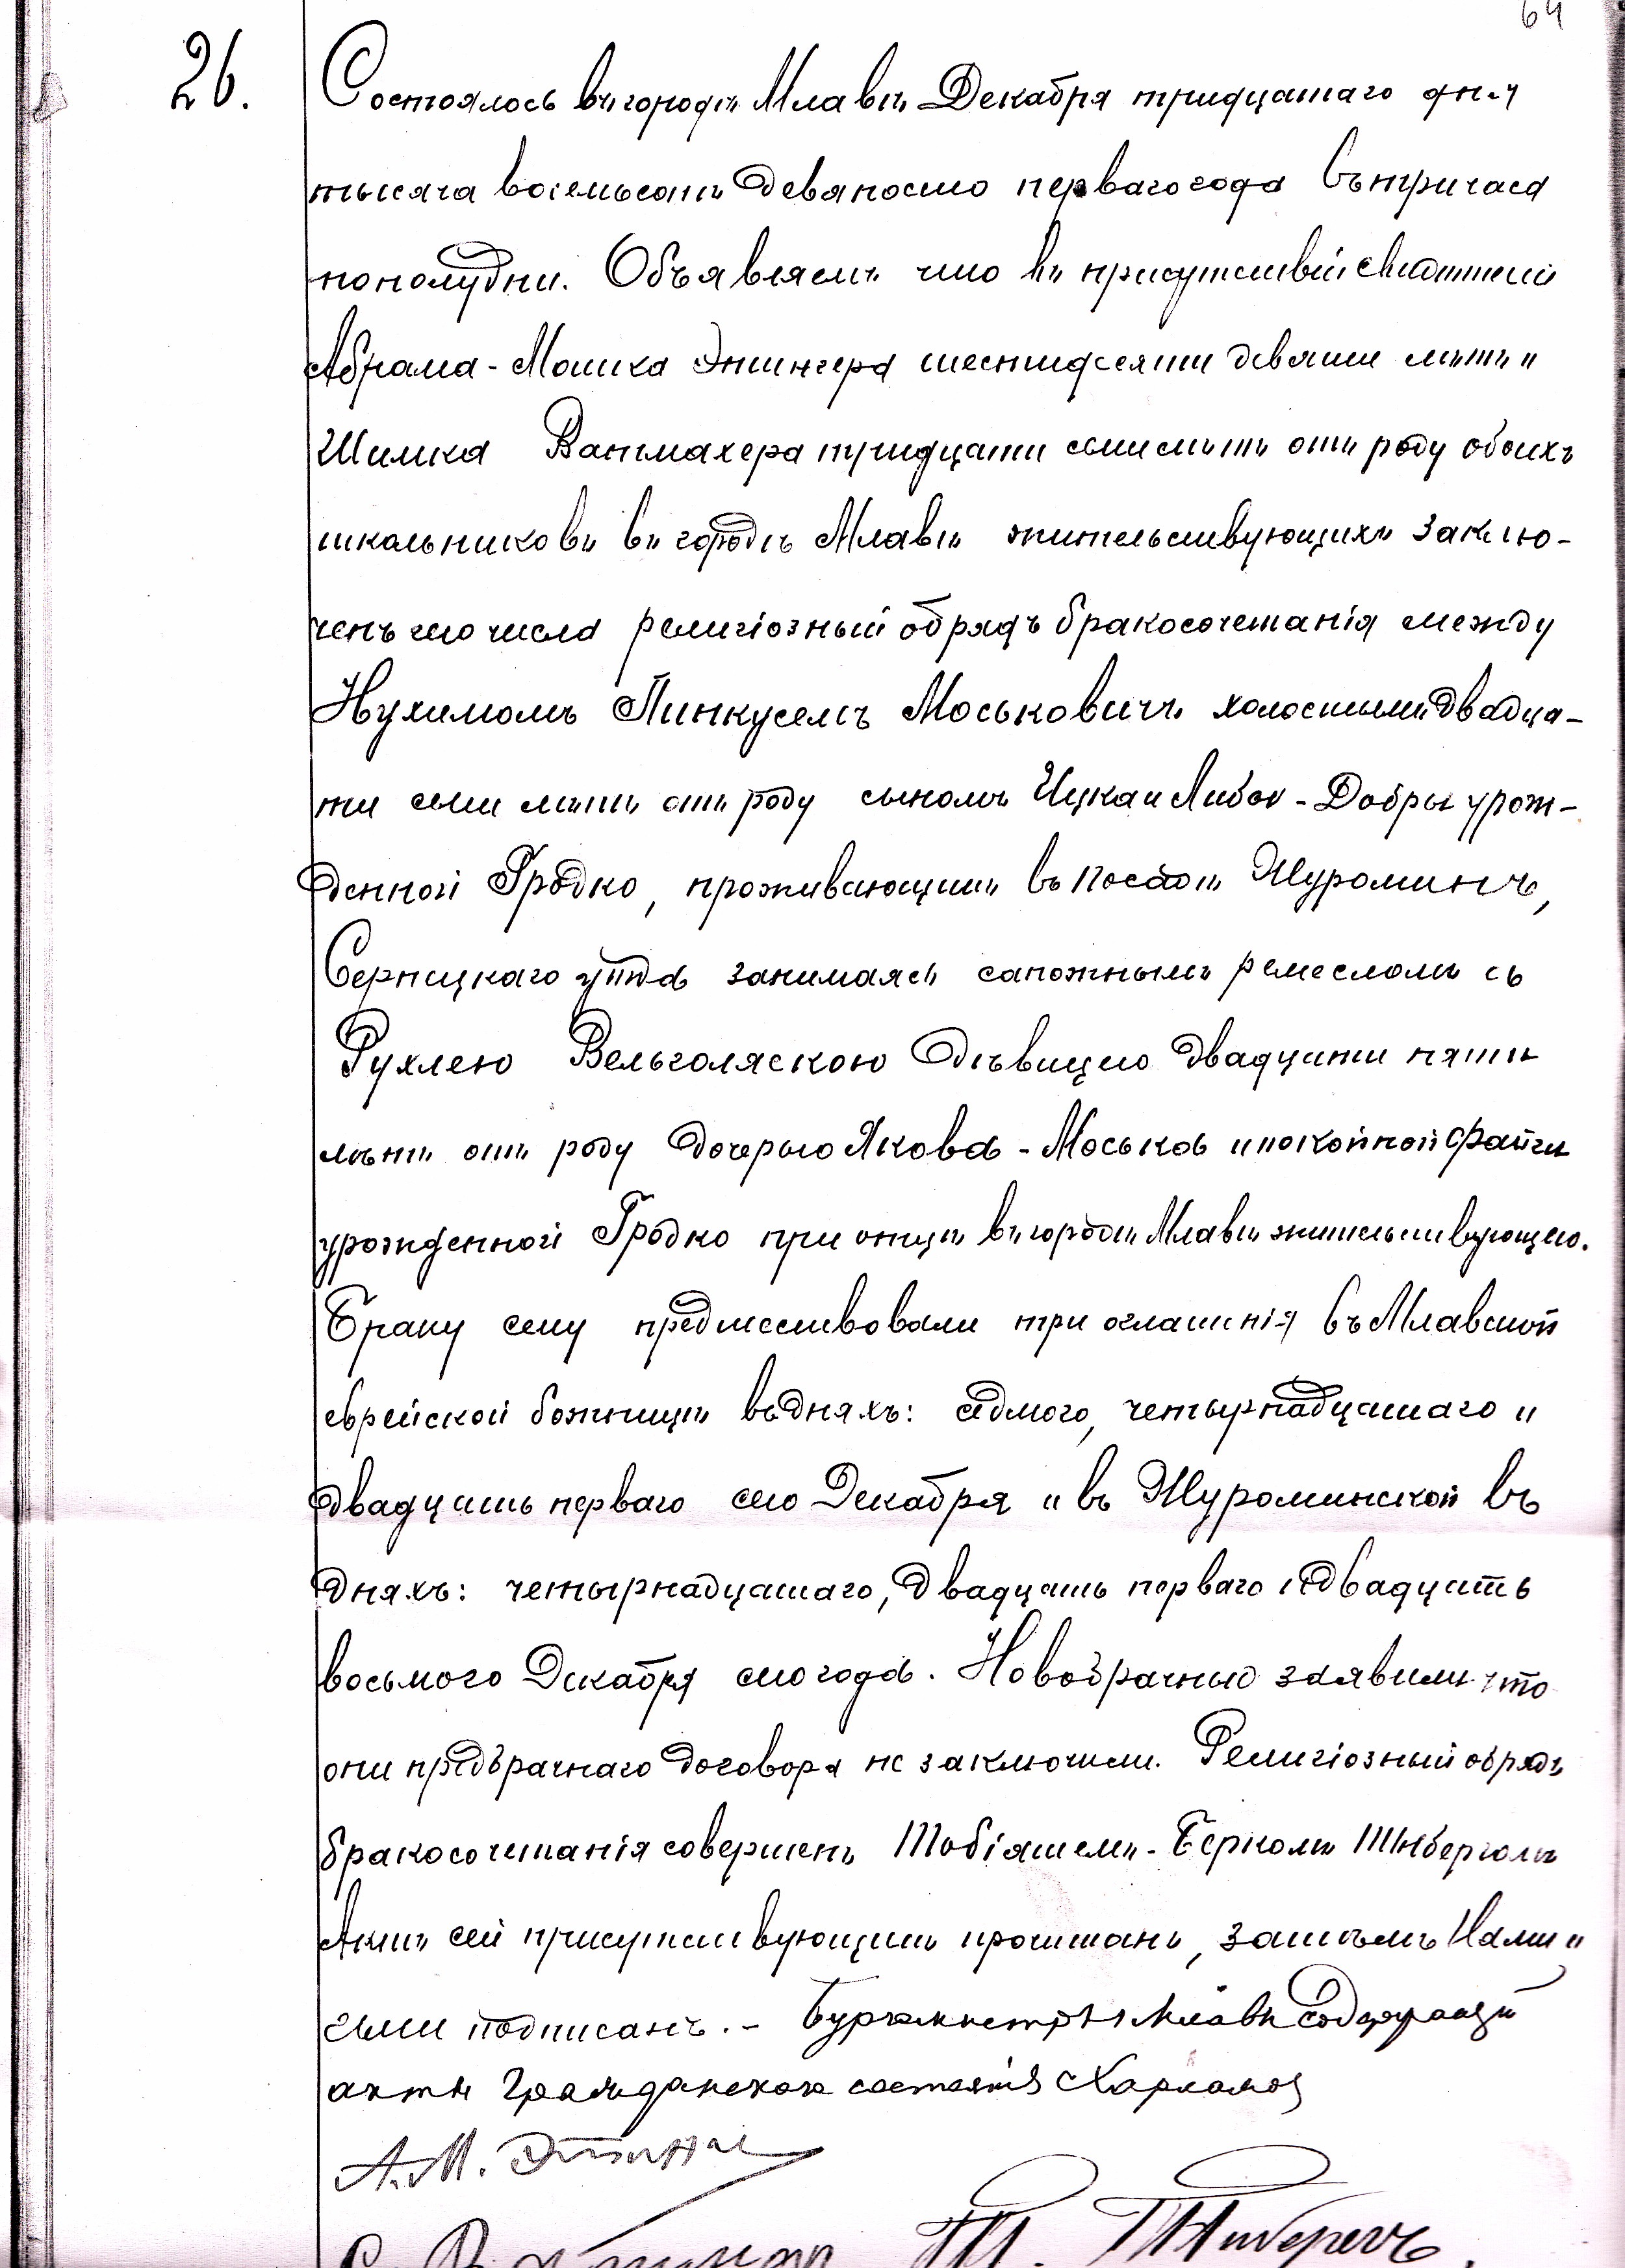 64
26.
Состоялось въ городѣ Млавѣ Декабря тридцатаго дня
тысяча восемьсотъ девяносто перваго года въ три часа
пополудни. Объявляемъ что въ присутствіи свидѣтелей
Абрама-Мошка Этингера шестидесяти девяти лѣтъ и
Шимка Ватмахера тридцати семи лѣтъ отъ роду обоихъ
школьниковъ въ городѣ Млавѣ жительствующихъ заклю-
ченъ сего числа религіозный обрядъ бракосочетанія между
Нухимомъ Пинкусемъ Моськовичъ холостымъ двадца-
ти семи лѣтъ отъ роду сыномъ Ицка и Либы-Добры урож-
денной Гродко, проживающимъ въ посадѣ Журоминъ,
Серпецкаго уѣзда занимаясь сапожнымъ ремесломъ съ
Рухлею Вельголяскою дѣвицею двадцати пяти
лѣтъ отъ роду дочерью Якова-Моська и покойной Файги
урожденной Гродко при отцѣ въ городѣ Млавѣ жительствующею.
Браку сему предшествовали три оглашенія въ Млавской
еврейской божницѣ въ дняхъ: седмого, четырнадцатаго и
двадцать перваго сего Декабря и въ Журоминской въ
дняхъ: четырнадцатаго, двадцать перваго и двадцать
восьмого Декабря сего года. Новобрачные заявили что
они предбрачнаго договора не заключили. Религіозный обрядъ
бракосочетанія совершенъ Тобіяшемъ-Беркомъ
Актъ сей присутствующимъ прочитанъ, затѣмъ Нами и
ими подписанъ.- Бургомистръ г. Млавы Содержащій
акты Гражданскаго состоянія
А. М.